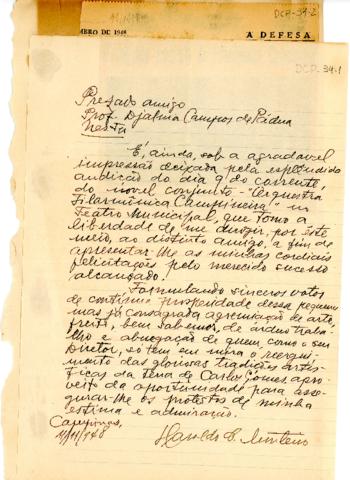 DCP-34-2
MBRO DE 1948 A DEFESA
DCP-34-1
Prezado amigo
Prof. Djalma Campos de Pádua
Nesta
É, ainda, sob a agradavel
impressão deixada pela esplêndida
audição do dia 9 do corrente,
do novel conjunto - "Orquestra
Filarmônica Campineira" no
Teatro Municipal, que tomo a
liberdade de me dirigir, por este
meio, ao distinto amigo, a fim de
apresentar-lhe as minhas cordiais
felicitações pelo merecido sucesso
alcançado!
Formulando sinceros votos
de contínua prosperidade dessa pequena
mas já consagrada agremiação de arte,
fruto, bem sabemos, de árduo traba-
lho e abnegação de quem, como o seu
Diretor, só tem em mira o reergui-
mento das gloriosas tradições artís-
ticas da terra de Carlos Gomes, apro-
veito da oportunidade para asse-
gurar-lhe os protestos de minha
estima e admiração.
Campinas,
Haroldo